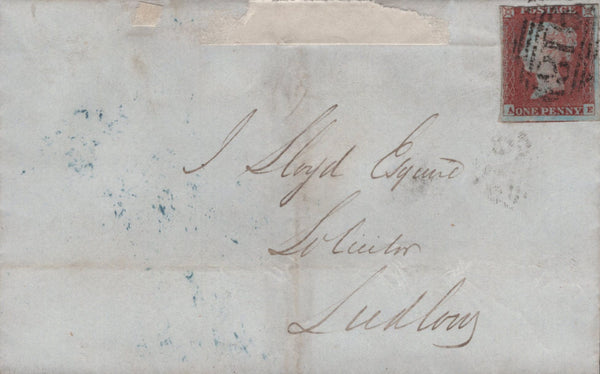 POSTAGE
A ONE PENNY E
J Lloyd Esquire
Solicitor
Ludlow